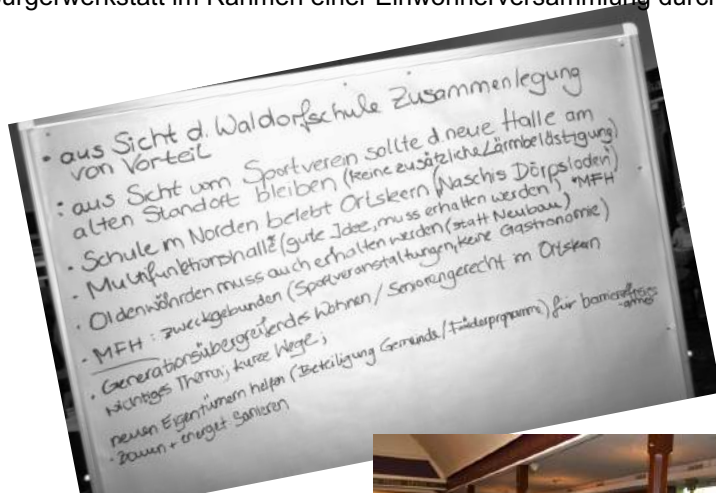 Bürgerwerkstatt im Rahmen einer Einwohnerversammlung durch
• aus Sicht d. Waldorfschule Zusammenlegung
von Vorteil
• aus Sicht vom Sportverein sollte d. neue Halle am
alten Standort bleiben (keine zusätzliche Lärmbelästigung)
• Schule im Norden belebt Ortskern (Naschis Dörpsloden)
• Multifunktionshalle (gute Idee, muss erhalten werden) *MFH
• Oldenwöhrden muss auch erhalten werden (statt Neubau)
• MFH: zweckgebunden (Sportveranstaltungen, keine Gastronomie)
• Generationsübergreifendes Wohnen / Seniorengerecht im Ortskern
wichtiges Thema; kurze Wege;
neuen Eigentümern helfen (Beteiligung Gemeinde / Förderprogramme) für
• Bauen + energet. Sanieren